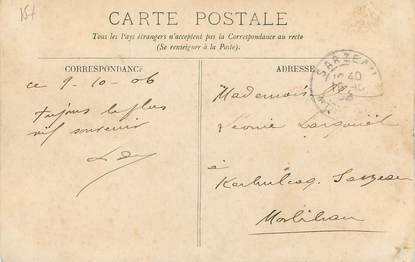 CARTE POSTALE
Tous les Pays étrangers n'acceptent pas la Correspondance au recto
(Se renseigner à la Poste).
CORRESPONDANCE
ce 9-10-06
toujours le plus
vif souvenir
ADRESSE
SARZEAU
Mademois
Léonie
à
Sarzeau
Morbihan